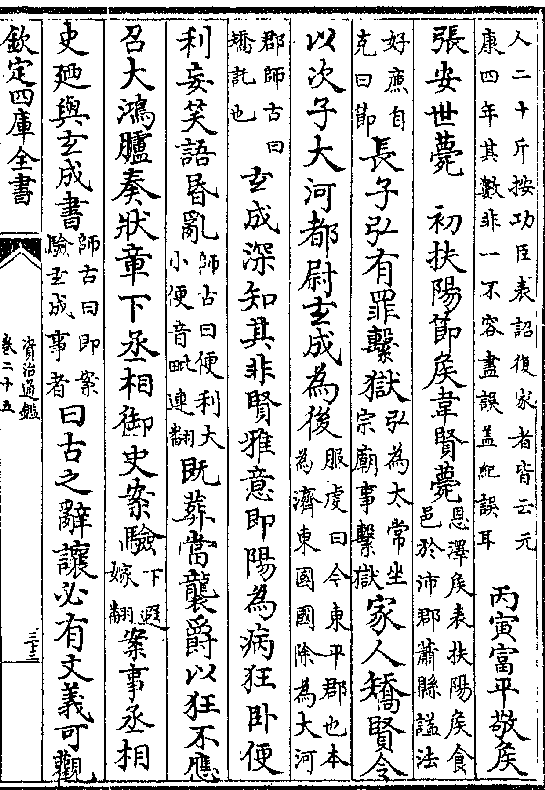 人二十斤按功臣表詔復家者皆云元
康四年其數非一不容盡誤盖紀誤耳
丙寅富平敬侯
張安世薨
初扶陽節侯韋賢薨
恩澤侯表扶陽侯食
邑於沛郡蕭縣諡法
好廉自
克曰節
長子弘有罪繫獄
弘為太常坐
宗廟事繫獄
家人矯賢令
以次子大河都尉玄成為後
服虔曰今東平郡也本
為濟東國國除為大河
郡師古曰
矯託也
玄成深知其非賢雅意即陽為病狂卧便
利妄笑語昬亂
師古曰便利大
小便音毗連翻
既葬當襲爵以狂不應
召大鴻臚奏狀章下丞相御史案驗
下遐
嫁翻
案事丞相
史廼與玄成書
師古曰即案
驗玄成事者
曰古之辭讓必有文義可觀
欽定四庫全書
資治通鑑
卷二十五
三十三